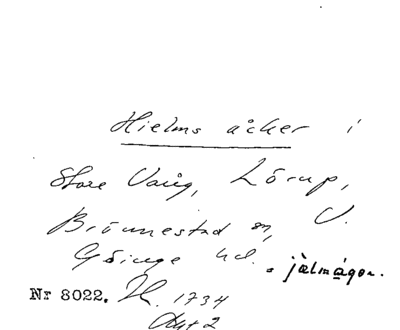 Hielms åcker i
Store Vång, Lörup,
Brönnestad sn, V.
Göinge hd. jälmågor.
Nr 8022. Jk. 1734
Akt 2